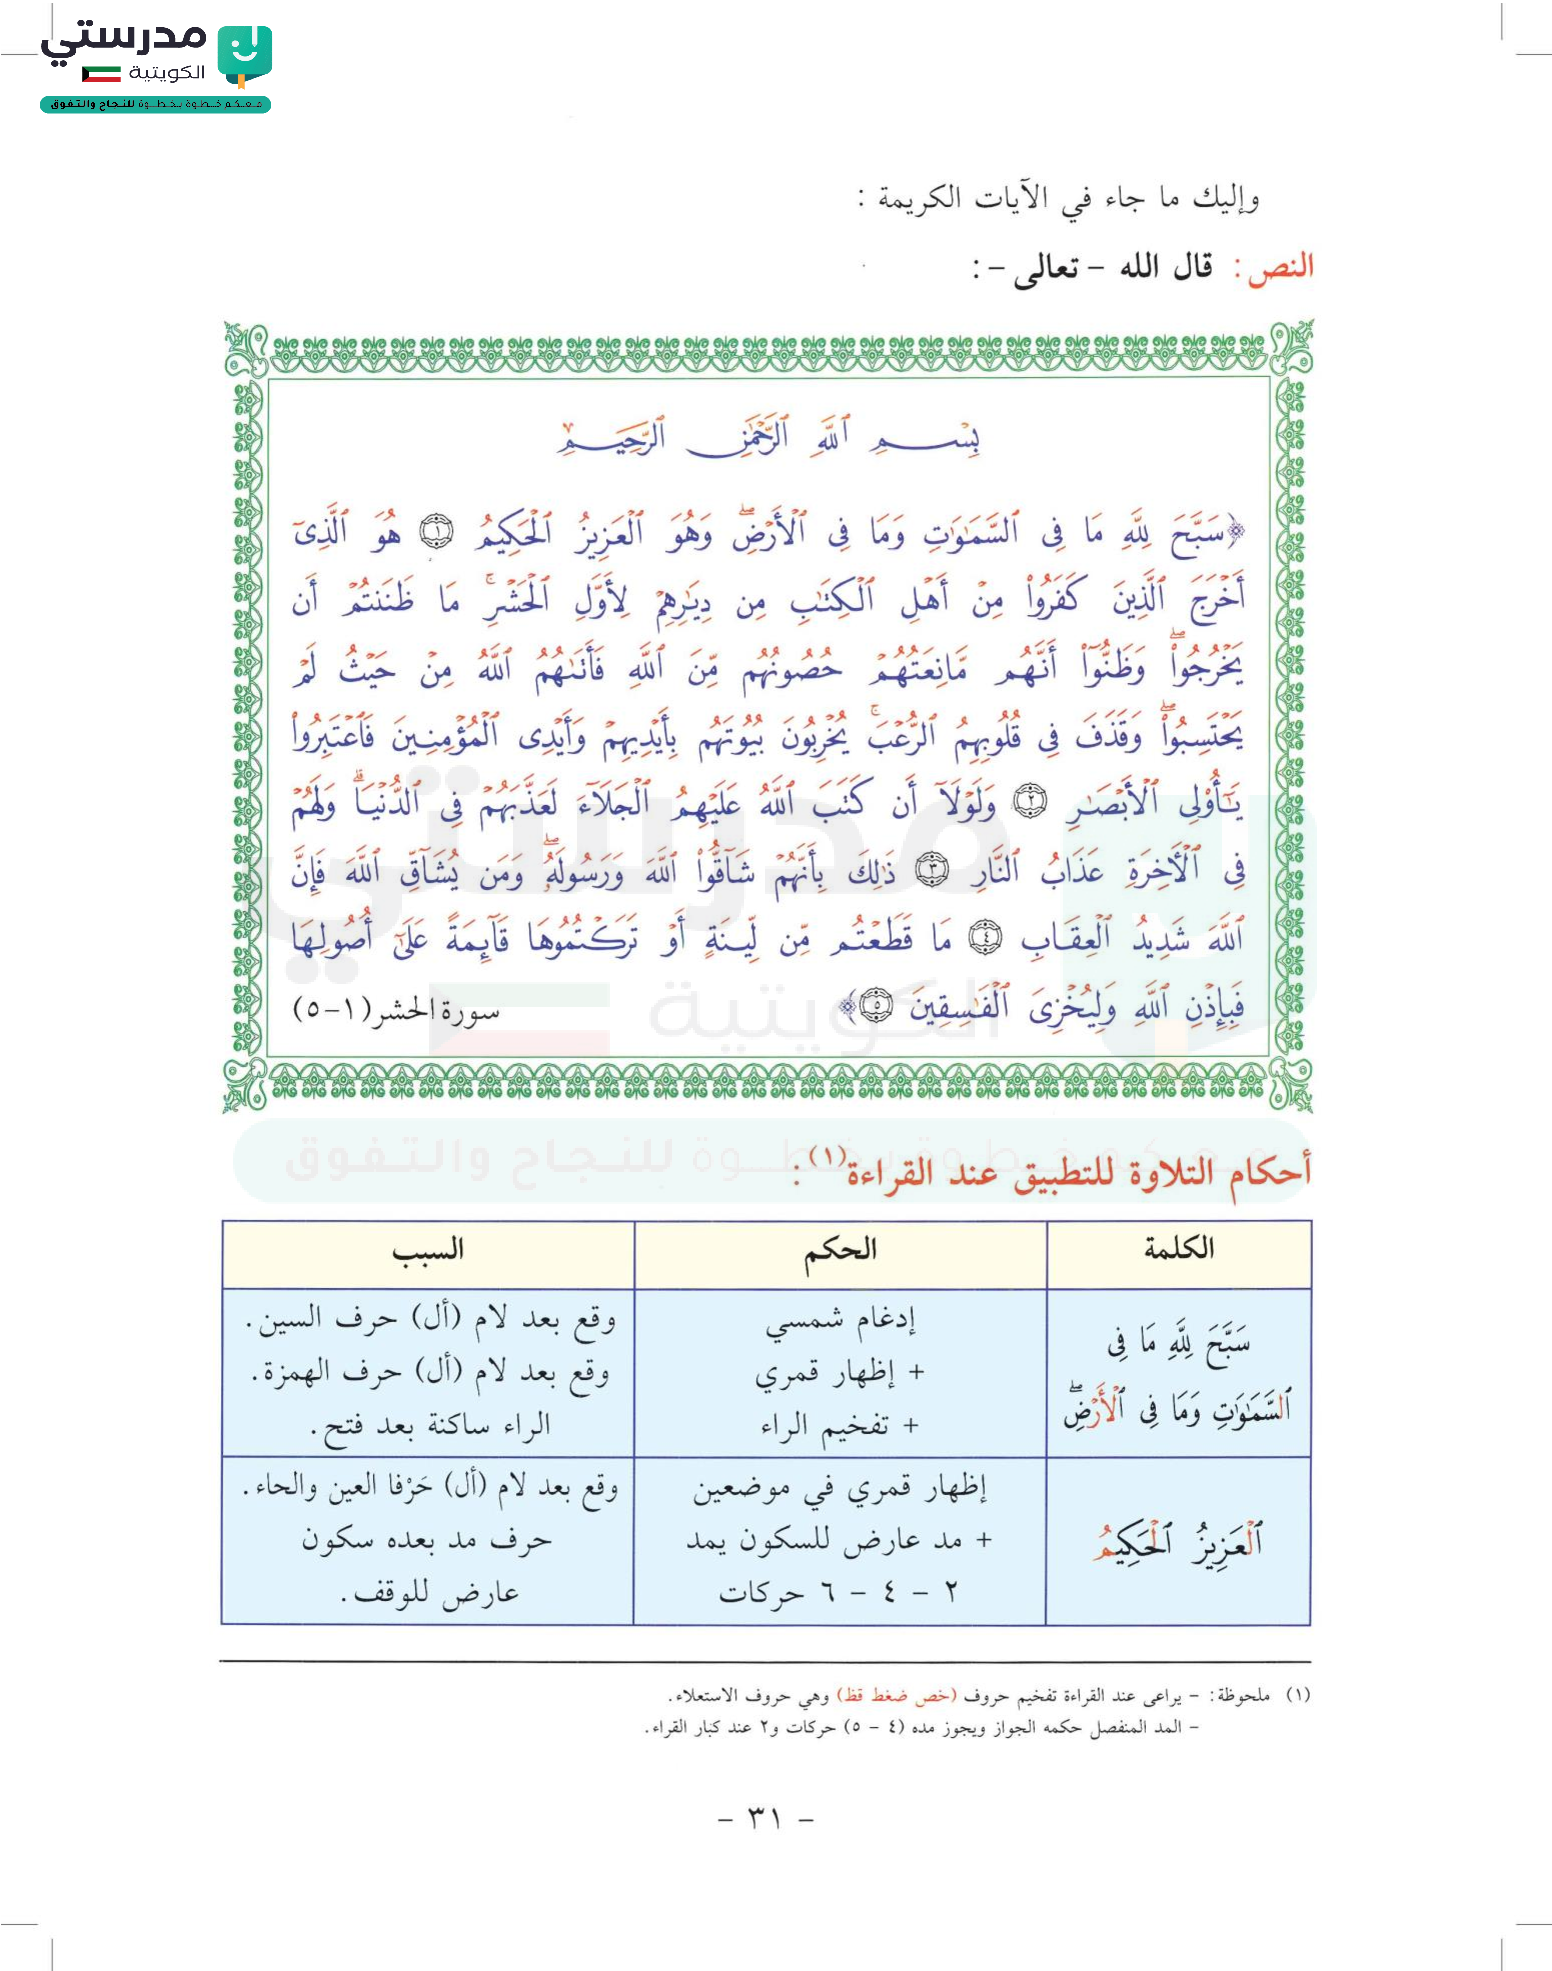 مدرستي
الكويتية
معكم خطوة بخطوة للنجاح والتفوق
وإليك ما جاء في الآيات الكريمة :
النص : قال الله - تعالى - :
بِسْمِ ٱللَّهِ ٱلرَّحْمَٰنِ ٱلرَّحِيمِ
﴿سَبَّحَ لِلَّهِ مَا فِى ٱلسَّمَٰوَٰتِ وَمَا فِى ٱلْأَرْضِۖ وَهُوَ ٱلْعَزِيزُ ٱلْحَكِيمُ ١ هُوَ ٱلَّذِىٓ
أَخْرَجَ ٱلَّذِينَ كَفَرُوا۟ مِنْ أَهْلِ ٱلْكِتَٰبِ مِن دِيَٰرِهِمْ لِأَوَّلِ ٱلْحَشْرِۚ مَا ظَنَنتُمْ أَن
يَخْرُجُوا۟ۖ وَظَنُّوٓا۟ أَنَّهُم مَّانِعَتُهُمْ حُصُونُهُم مِّنَ ٱللَّهِ فَأَتَىٰهُمُ ٱللَّهُ مِنْ حَيْثُ لَمْ
يَحْتَسِبُوا۟ۖ وَقَذَفَ فِى قُلُوبِهِمُ ٱلرُّعْبَۚ يُخْرِبُونَ بُيُوتَهُم بِأَيْدِيهِمْ وَأَيْدِى ٱلْمُؤْمِنِينَ فَٱعْتَبِرُوا۟
يَٰٓأُو۟لِى ٱلْأَبْصَٰرِ ٢ وَلَوْلَآ أَن كَتَبَ ٱللَّهُ عَلَيْهِمُ ٱلْجَلَآءَ لَعَذَّبَهُمْ فِى ٱلدُّنْيَاۖ وَلَهُمْ
فِى ٱلْأَخِرَةِ عَذَابُ ٱلنَّارِ ٣ ذَٰلِكَ بِأَنَّهُمْ شَآقُّوا۟ ٱللَّهَ وَرَسُولَهُۥۖ وَمَن يُشَآقِّ ٱللَّهَ فَإِنَّ
ٱللَّهَ شَدِيدُ ٱلْعِقَابِ ٤ مَا قَطَعْتُم مِّن لِّينَةٍ أَوْ تَرَكْتُمُوهَا قَآئِمَةً عَلَىٰٓ أُصُولِهَا
فَبِإِذْنِ ٱللَّهِ وَلِيُخْزِىَ ٱلْفَٰسِقِينَ ٥﴾ سورة الحشر (١-٥)
أحكام التلاوة للتطبيق عند القراءة(١) :
الكلمة الحكم السبب
سَبَّحَ لِلَّهِ مَا فِى
ٱلسَّمَٰوَٰتِ وَمَا فِى ٱلْأَرْضِۖ
إدغام شمسي
+ إظهار قمري
+ تفخيم الراء
وقع بعد لام (أل) حرف السين.
وقع بعد لام (أل) حرف الهمزة.
الراء ساكنة بعد فتح.
ٱلْعَزِيزُ ٱلْحَكِيمُ
إظهار قمري في موضعين
+ مد عارض للسكون يمد
٢ - ٤ - ٦ حركات
وقع بعد لام (أل) حَرْفا العين والحاء.
حرف مد بعده سكون
عارض للوقف.
(١) ملحوظة: - يراعى عند القراءة تفخيم حروف (خص ضغط قظ) وهي حروف الاستعلاء.
- المد المنفصل حكمه الجواز ويجوز مده (٤ - ٥) حركات و٢ عند كبار القراء.
- ٣١ -